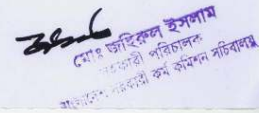 মোঃ জহিরুল ইসলাম
সহকারী পরিচালক
বাংলাদেশ সরকারী কর্ম কমিশন সচিবালয়